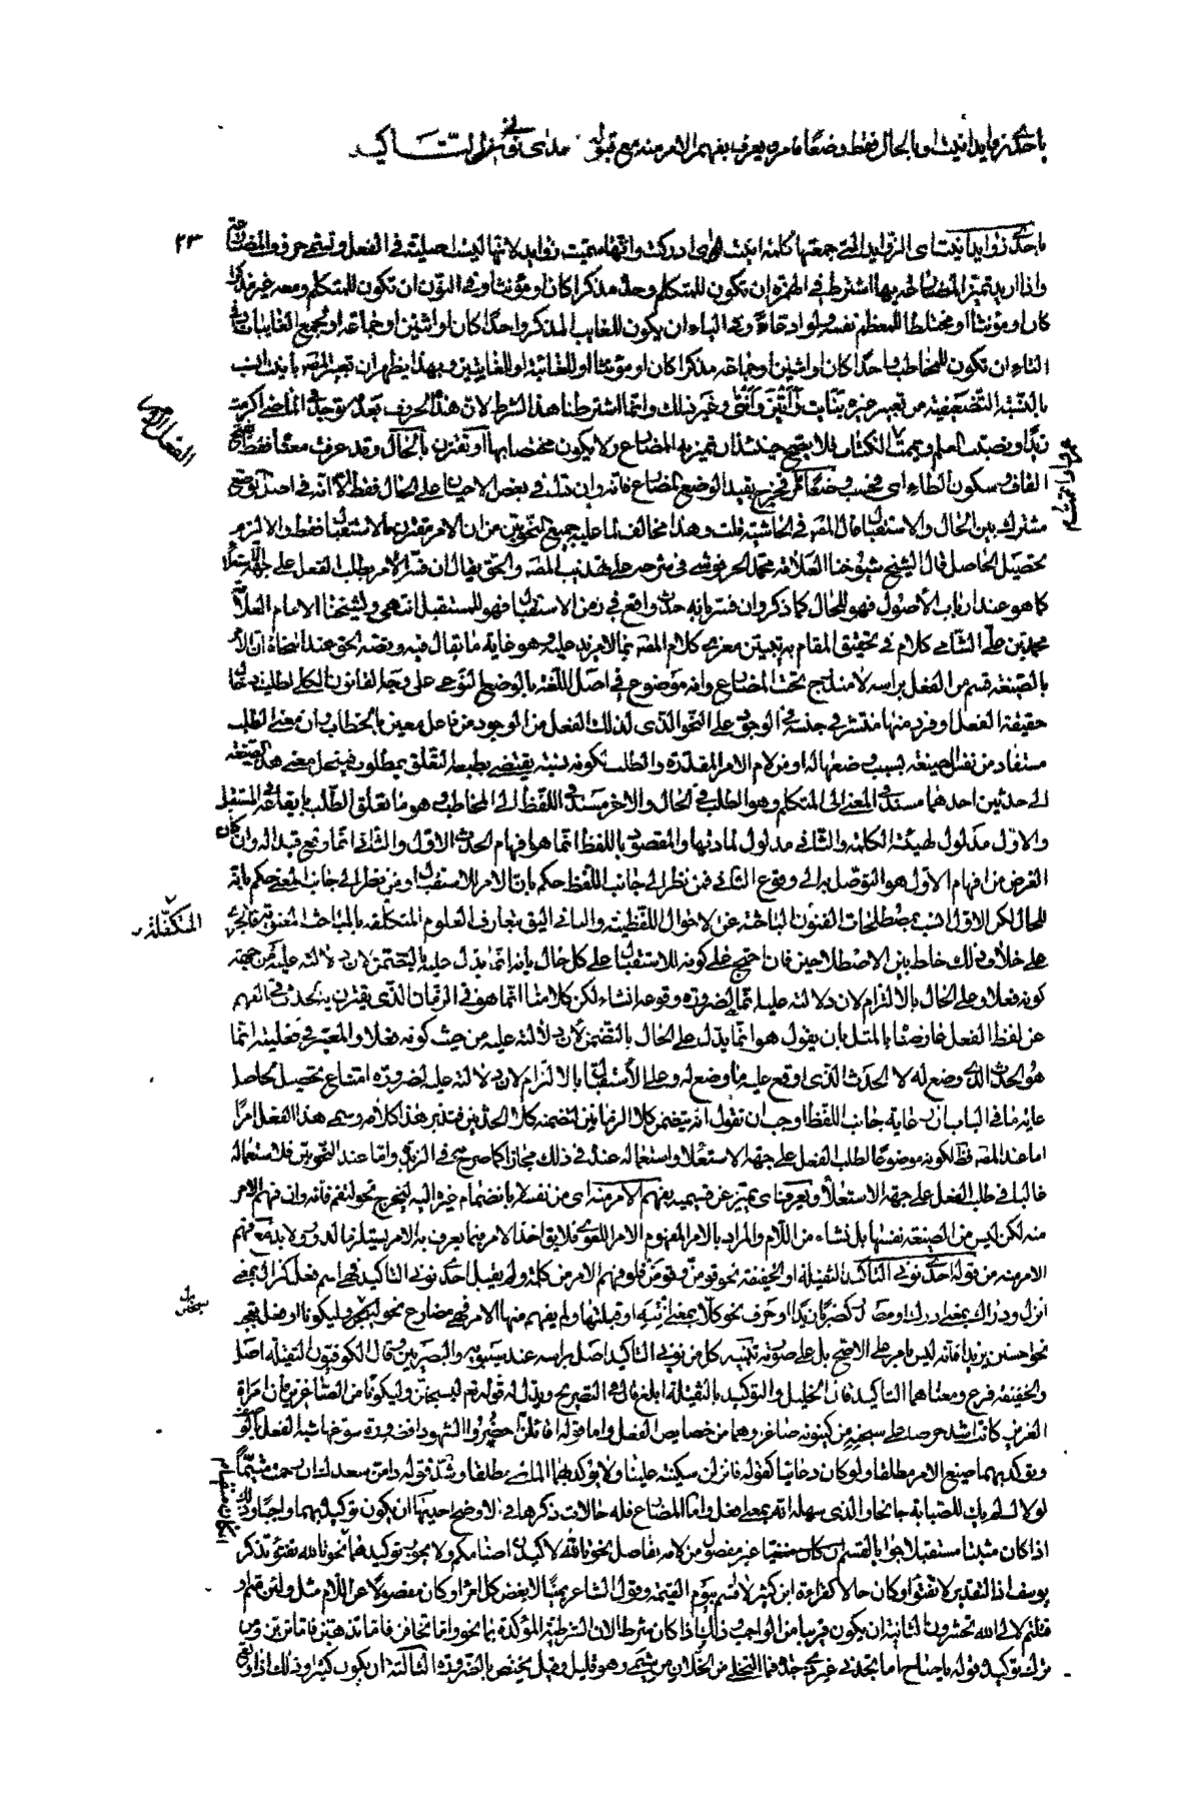 باحدى زوايد انيت او بالحال فقط وضعا فامر ويعرف بفهم الامر منه مع قبوله نوني التاكيد
٢٣
باحدى زوايد انيت اى الزوايد التى جمعتها كلمة انيت اى ادركت وانما سميت زوايد لانها ليست اصلية فى الفعل وتسمى حروف المضارعة
واذا اريد تميز المضارع بها اشترط فى الهمزة ان تكون للمتكلم وحده مذكرا كان او مؤنثا وفى النون ان تكون للمتكلم ومعه غيره مذكرا
كان او مؤنثا او مختلطا او للمعظم نفسه ولو ادعاء وفى الياء ان يكون للغايب المذكر واحدا كان او اثنين او جماعة او لجمع الغايبات وفى
التاء ان تكون للمخاطب واحدا كان او اثنين او جماعة مذكرا كان او مؤنثا او للغائبة او للغايبتين وبهذا يظهر ان تعبير المصـ بانيت انسب
بالنسبة من تعبير غيره بنايت ونأتى وغير ذلك وانما اشترطنا هذا الشرط لان هذه الحروف بعد توجد فى الماضى اكرمت
الفعل
زيدا ويمت الكتاب فلا يصح حينئذ ان تميز به المضارع ولا يكون مختصا بها او تقترن بالحال وقد عرفت معناه فقط بفتح
القاف وسكون الطاء اى فحسب وضعا فخرج بقيد الوضع المضارع فانه وان دل فى بعض الاحيان على الحال فقط الا انه فى اصل الوضع
مشترك بين الحال والاستقبال قال المصـ فى الحاشية قلت وهذا مخالف لما عليه جميع النحويين من ان الامر مقترن بالاستقبال فقط والا لزم
تحصيل الحاصل قال الشيخ شيخنا العلامة محمد الحرفوشى فى شرحه على تهذيب المصـ والحق يقال ان فسر الامر بطلب الفعل على جهة الاستعلاء
كما هو عند ارباب الاصول فهو للحال كما ذكر وان فسر بانه حدث واقع فى زمن الاستقبال فهو للمستقبل انتهى ولشيخنا الامام العلامة
محمد بن على الشامى كلام فى تحقيق المقام به يتبين مغزى كلام المصـ بما لا مزيد عليه وهو غاية ما يقال فيه ونصه الحق عند النحاة ان الامر
بالصيغة قسم من الفعل براسه لا مندرج تحت المضارع وانه موضوع فى اصل اللغة بالوضع النوعى على وجه القانون الكلى لطلب
حقيقة الفعل او فرد منها منتشر فى جنسه فى الوجود على النحو الذى لذلك الفعل من الوجود من فاعل معين بالخطاب وان معنى الطلب
مستفاد من نفس الصيغة بسبب وضعها له او من لام الامر المقدرة والطلب لكونه نسبة يقتضى بطبعه التعلق بمطلوب فينحل معنى هذه الصيغة
الى حدثين احدهما مسند فى المعنى الى المتكلم وهو الطلب فى الحال والآخر مسند فى اللفظ الى المخاطب وهو ما تعلق الطلب بايقاعه فى المستقبل
والاول مدلول لهيئة الكلمة والثانى مدلول لمادتها والمقصود باللفظ انما هو افهام الحدث الاول والثانى انما وقع قيدا له وان كان
الغرض من افهام الاول هو التوصل به الى وقوع الثانى فمن نظر الى جانب اللفظ حكم بان الامر للاستقبال ومن نظر الى جانب المعنى حكم بانه
للحال لكن الاول انسب بمصطلحات الفنون الباحثة عن الاحوال اللفظية والثانى اليق بتعارف العلوم المتكلفه بالمباحث المعنوية
المتكفلة
على خلاف ذلك خالط بين الاصطلاحين فان احتج على كونه للاستقبال على كل حال بانه انما يدل عليه بالتضمن لان دلالته عليه من جهة
كونه فعلا وعلى الحال بالالتزام لان دلالته عليه انما لضرورة وقوعه انشاء لكن كلامنا انما هو فى الزمان الذى يقترن به الحدث فى الفهم
عن لفظ الفعل عارضنا بالمثل بان يقول هو انما يدل على الحال بالتضمن لان دلالته عليه من حيث كونه فعلا والمعتبر فى فعليته انما
هو الحدث الذى وضع له لا الحدث الذى اوقع عليه ما وضع له وعلى الاستقبال بالالتزام لان دلالته عليه لضرورة امتناع تحصيل الحاصل
غاية ما فى الباب ان رعاية جانب اللفظ اوجب ان نقول انه يتضمن كلا الزمانين لتضمنه كلا الحدثين فتدبر هذا كلامه وسمى هذا الفعل امرا
اما عند المصـ فظ لكونه موضوعا لطلب الفعل على جهة الاستعلاء واستعماله عنده فى ذلك مجازا كما صرح به فى الزبدة واما عند النحويين فلاستعماله
غالبا فى طلب الفعل على جهة الاستعلاء ويعرف اى يميز عن قسيميه بفهم الامر منه اى من نفسه لا بانضمام غيره اليه ليخرج نحو لتقم فانه وان فهم الامر
منه لكن ليس من الصيغة نفسها بل نشاء من اللام والمراد بالامر المفهوم الامر اللغوى فلا يق اخذ الامر فيما يعرف به الامر يستلزم الدور ولا بد مع فهم
الامر منه من قبوله احدى نونى التاكيد الثقيلة او الخفيفة نحو قومنّ وقومن فلو فهم الامر من كلمة ولم يقبل احدى نونى التاكيد فهى اسم فعل كنزال بمعنى
انزل ودراك بمعنى ادرك او مصدر كضربا زيدا او حرف نحو كلا بمعنى انته او قبلتها ولم يفهم منها الامر فهى مضارع نحو ليسجنن وليكونا او فعل تعجب
نحو احسن بزيد فانه ليس بامر على الاصح بل على صورته تنبيه كل من نونى التاكيد اصل براسه عند سيبويه والبصريين وقال الكوفيون الثقيلة اصل
والخفيفة فرع ومعناهما التاكيد قال الخليل والتوكيد بالثقيلة ابلغ قال فى التصريح ويدل له قوله تعالى ليسجنن وليكونا من الصاغرين فان امرأة
العزيز كانت اشد حرصا على سجنه من كينونته صاغرا وهما من خصايص الفعل واما قوله اقائلن احضروا الشهودا فضرورة سوغها شبه الفعل
ويؤكد بهما صيغ الامر مطلقا ولو كان دعائيا كقوله فانزلن سكينة علينا ولا يؤكد بهما الماضى مطلقا وشذ قوله دامن سعدك ان رحمت متيما
لولاك لم يك للصبابة جانحا والذى سهله انه بمعنى افعل واما المضارع فله حالات ذكرها فى الاوضح احديها ان يكون توكيده بهما واجبا وذلك
اذا كان مثبتا مستقبلا جوابا لقسم غير مفصول من لامه بفاصل نحو تالله لاكيدن اصنامكم ولا يجوز توكيده نحو تالله تفتؤ تذكر
يوسف اذ التقدير لا تفتؤ او كان حالا كقراءة ابن كثير لاقسم بيوم القيمة وقول الشاعر يمينا لابغض كل امرئ او كان مفصولا عن اللام مثل ولئن متم او
قتلتم لالى الله تحشرون الثانية ان يكون قريبا من الواجب وذلك اذا كان شرطا لان الشرطية المؤكدة بما نحو واما تخافن فاما نذهبن فاما ترين ومن
ترك توكيده قوله يا صاح اما تجدنى غير ذى جدة فما التخلى عن الخلان من شيمى وهو قليل وقيل يختص بالضرورة الثالثة ان يكون كثيرا وذلك اذا وقع